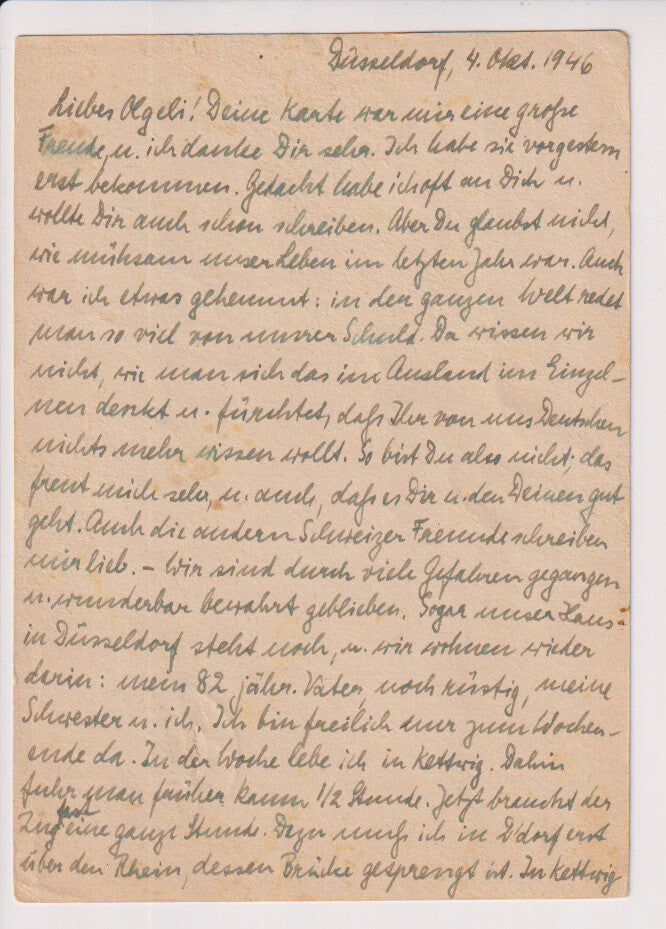 Düsseldorf, 4. Okt. 1946
Liebes Olgeli! Deine Karte war mir eine große
Freude, u. ich danke Dir sehr. Ich habe sie vorgestern
erst bekommen. Gedacht habe ich oft an Dich u.
wollte Dir auch schon schreiben. Aber Du glaubst nicht,
wie mühsam unser Leben im letzten Jahr war. Auch
war ich etwas gehemmt: in der ganzen Welt redet
man so viel von unsrer Schuld. Da wissen wir
nicht, wie man sich das im Ausland im Einzel-
nen denkt u. fürchtet, daß Ihr von uns Deutschen
nichts mehr wissen wollt. So bist Du also nicht; das
freut mich sehr, u. auch, daß es Dir u. den Deinen gut
geht. Auch die andern Schweizer Freunde schreiben
mir lieb. – Wir sind durch viele Gefahren gegangen
u. wunderbar bewahrt geblieben. Sogar unser Haus
in Düsseldorf steht noch, u. wir wohnen wieder
darin: mein 82 jähr. Vater, noch rüstig, meine
Schwester u. ich. Ich bin freilich nur zum Wochen-
ende da. In der Woche lebe ich in Kettwig. Dahin
fuhr man früher kaum 1/2 Stunde. Jetzt braucht der
Zug fast eine ganze Stunde. Dazu muß ich in D'dorf erst
über den Rhein, dessen Brücke gesprengt ist. In Kettwig